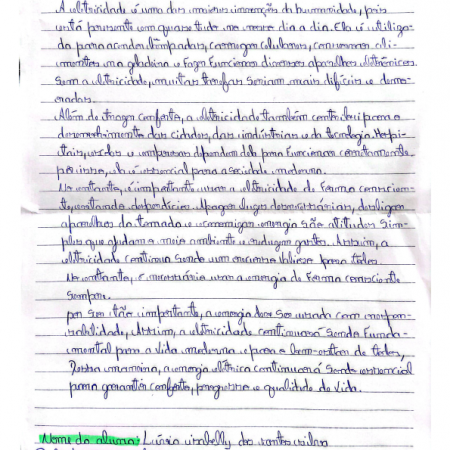 A eletricidade é uma das maiores invenções da humanidade, pois
está presente em quase tudo no nosso dia a dia. Ela é utiliza
da para acender lâmpadas, carregar celulares, conservar ali
mentos na geladeira e fazer funcionar diversos aparelhos eletrônicos.
Sem a eletricidade, muitas tarefas seriam mais difíceis e demo-
radas.
Além de trazer conforto, a eletricidade também contribui para o
desenvolvimento das cidades, das indústrias e da tecnologia. Hospi-
tais, escolas e empresas dependem dela para funcionar corretamente
por isso, ela é essencial para a sociedade moderna.
No entanto, é importante usar a eletricidade de forma conscien-
te, evitando desperdícios. Apagar luzes desnecessárias, desligar
aparelhos da tomada e economizar energia são atitudes sim-
ples que ajudam o meio ambiente e reduzem gastos. Assim, a
eletricidade continua sendo um para todos.
No entanto, é necessário usar a energia de forma consciente
sempre.
por ser tão importante, a energia deve ser usada com respon-
sabilidade, Assim, a eletricidade continuará sendo funda-
mental para a vida moderna e para o bem-estar de todos,
Dessa maneira, a energia elétrica continuará sendo essencial
para garantir conforto, progresso e qualidade de vida.
Nome da aluna: Lívia dos santos silva